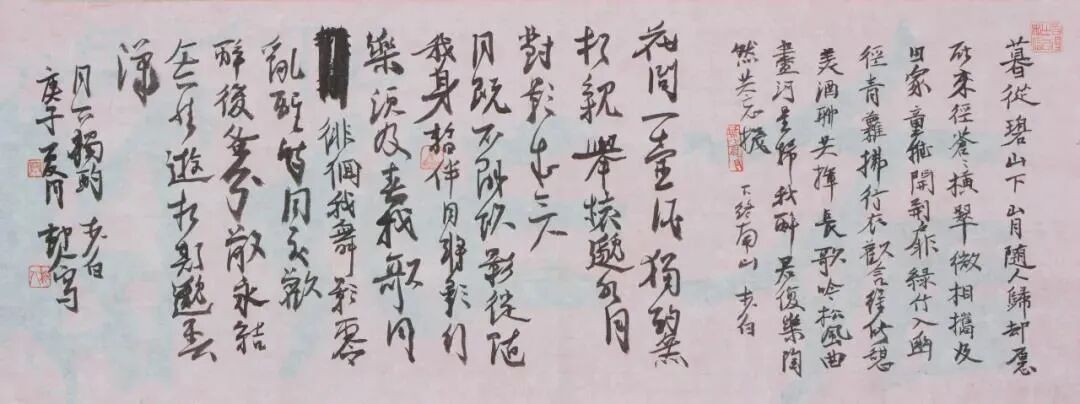 暮從碧山下山月隨人歸却顧
所來徑蒼〻橫翠微相攜及
田家童稚開荊扉綠竹入幽
徑青蘿拂行衣歡言得所憩
美酒聊共揮長歌吟松風曲
盡河星稀我醉君復樂陶
然共忘機 下終南山 李白
花間一壺酒獨酌無
相親舉杯邀明月
對影成三人
月既不解飲影徒隨
我身暫伴月將影行
樂須及春我歌月
徘徊我舞影零
亂醒時同交歡
醉後各分散永結
無情遊相期邈雲
漢
月下獨酌 李白
庚子夏月 寫